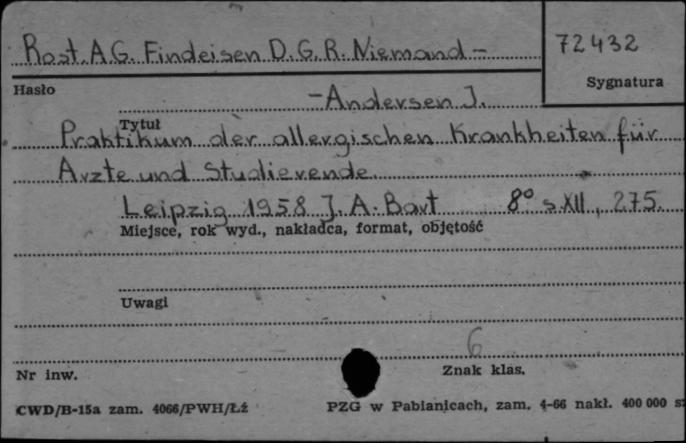 Rost A.G. Findeisen D.G.R. Niemand –
72432
Sygnatura
Hasło
– Andersen J.
Tytuł
Praktikum der allergischen Krankheiten für
Arzte und Studierende.
Leipzig 1958 J. A. Bart 8° s. XII, 275.
Miejsce, rok wyd., nakładca, format, objętość
Uwagi
6
Nr inw.
Znak klas.
CWD/B-15a zam. 4066/PWH/Łż PZG w Pabianicach, zam. 4-66 nakł. 400 000